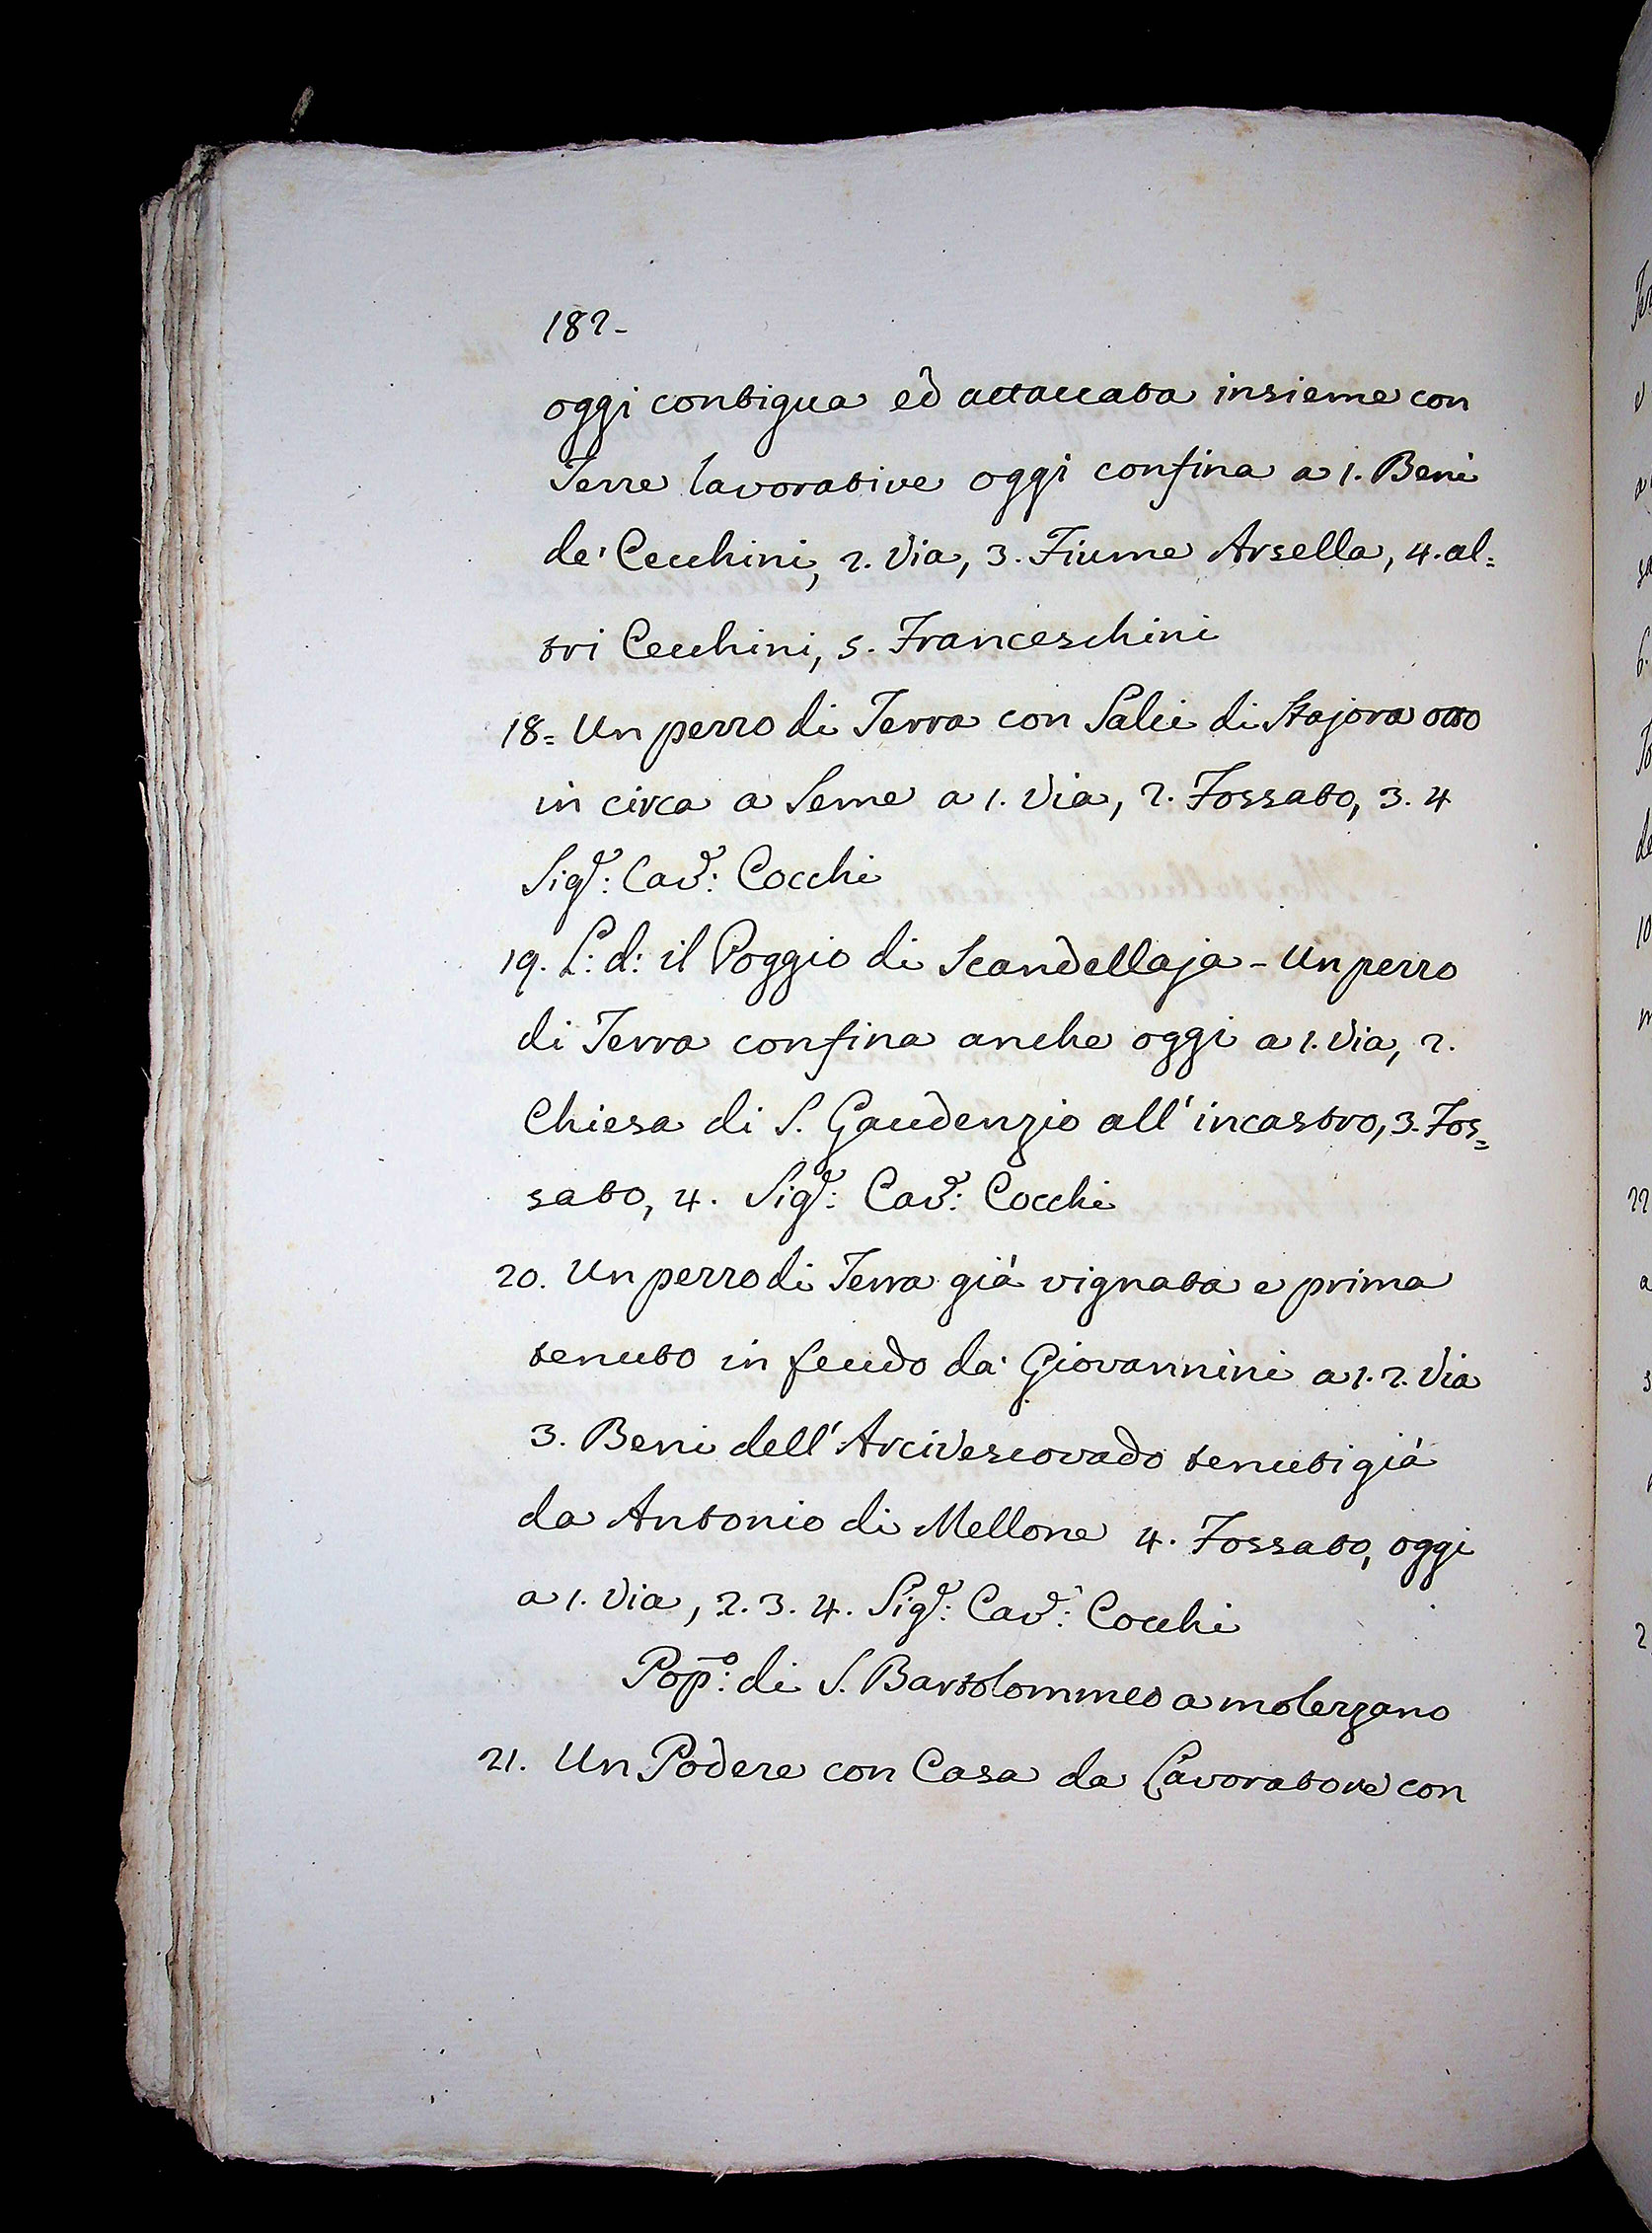 182-
oggi contigua ed attaccata insieme con
Terre lavorative oggi confina a 1. Beni
de' Cecchini, 2. Via, 3. Fiume Arsella, 4. al=
tri Cecchini, 5. Franceschini
18= Un pezzo di Terra con Salci di Stajora otto
in circa a Seme a 1. Via, 2. Fossato, 3. 4
Sigr: Cavr: Cocchi
19. L: d: il Poggio di Scandellaja - Un pezzo
di Terra confina anche oggi a 1. Via, 2.
Chiesa di S. Gaudenzio all' incastro, 3. Fos=
sato, 4. Sigr: Cavr: Cocchi
20. Un pezzo di Terra già vignata e prima
tenuto in feudo da' Giovannini a 1. 2. Via
3. Beni dell' Arcivescovado tenuti già
da Antonio di Mellone 4. Fossato, oggi
a 1. Via, 2. 3. 4. Sigr: Cavr: Cocchi
Popo: di S. Bartolommeo a molezzano
21. Un Podere con Casa da Lavoratore con